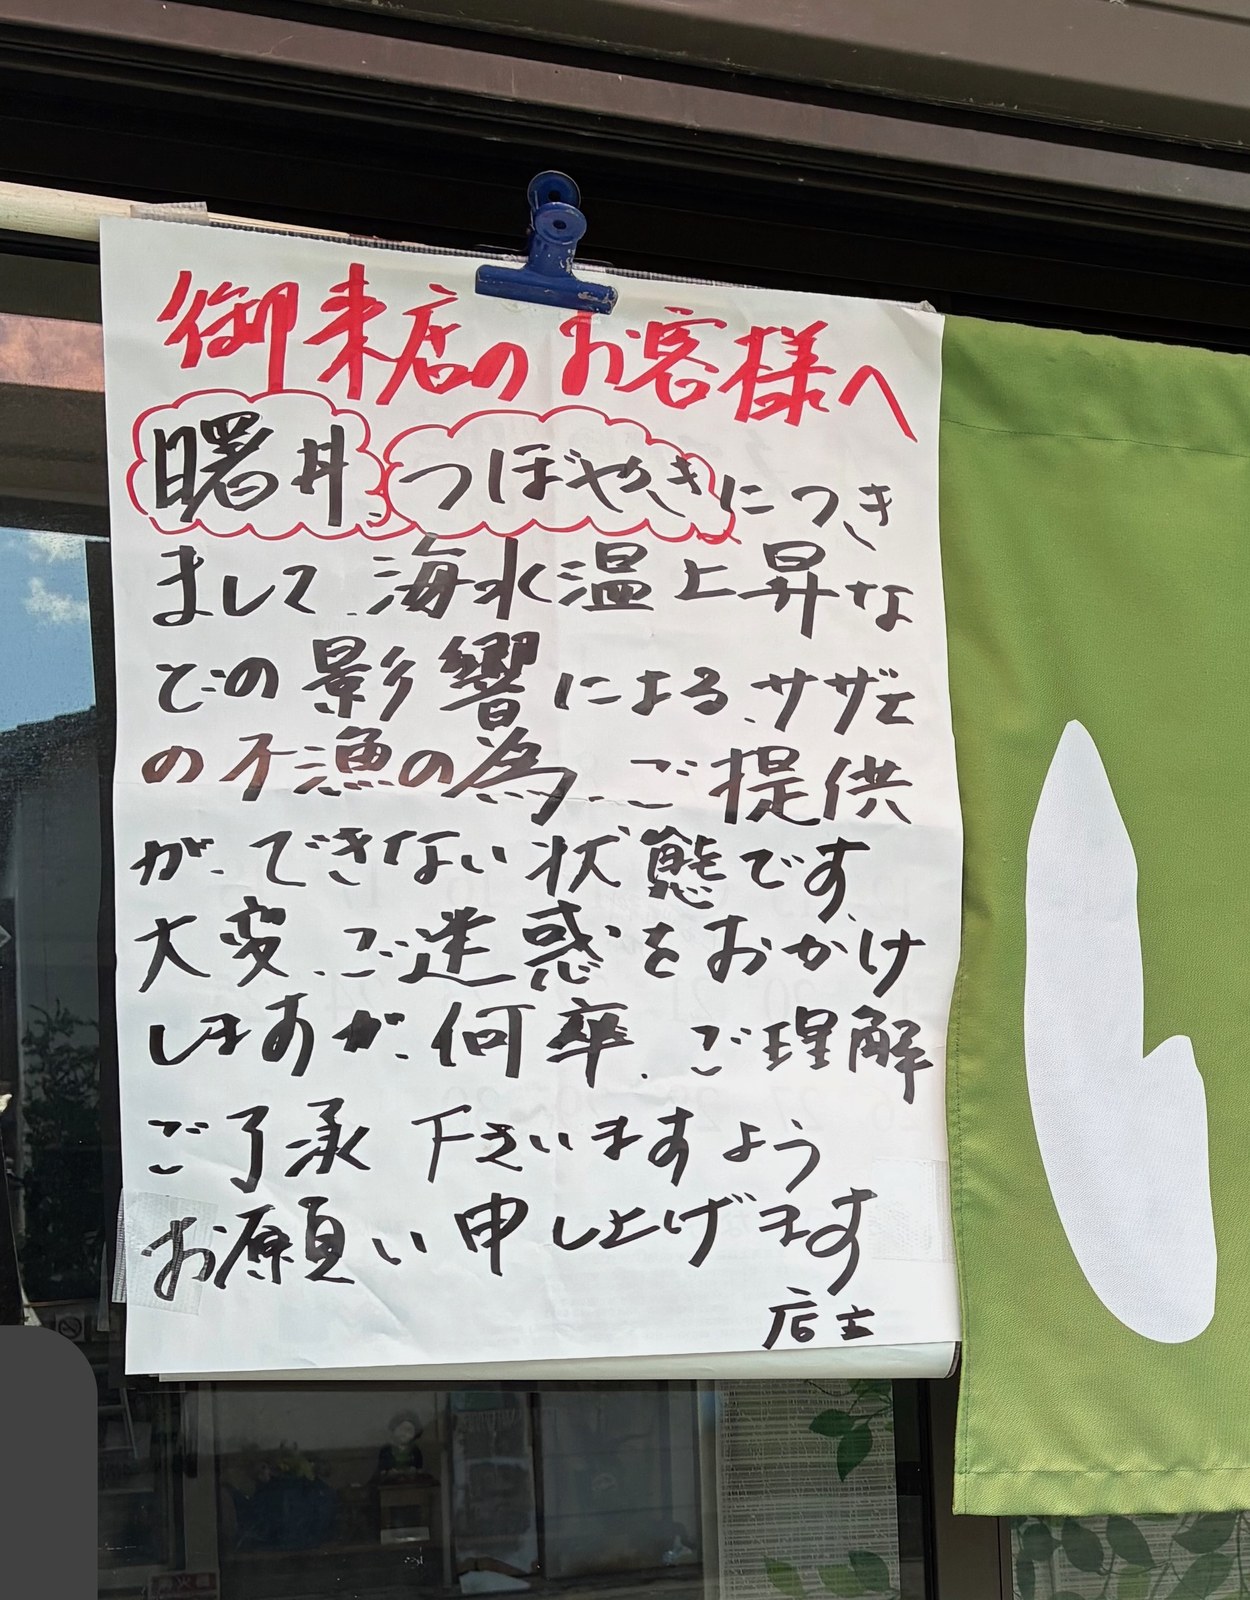 御来店のお客様へ
曙丼、つぼやきにつき
まして、海水温上昇な
どの影響による、サザエ
の不漁の為、ご提供
が、できない状態です、
大変、ご迷惑をおかけ
しますが、何卒、ご理解
ご了承下さいますよう
お願い申し上げます
店主